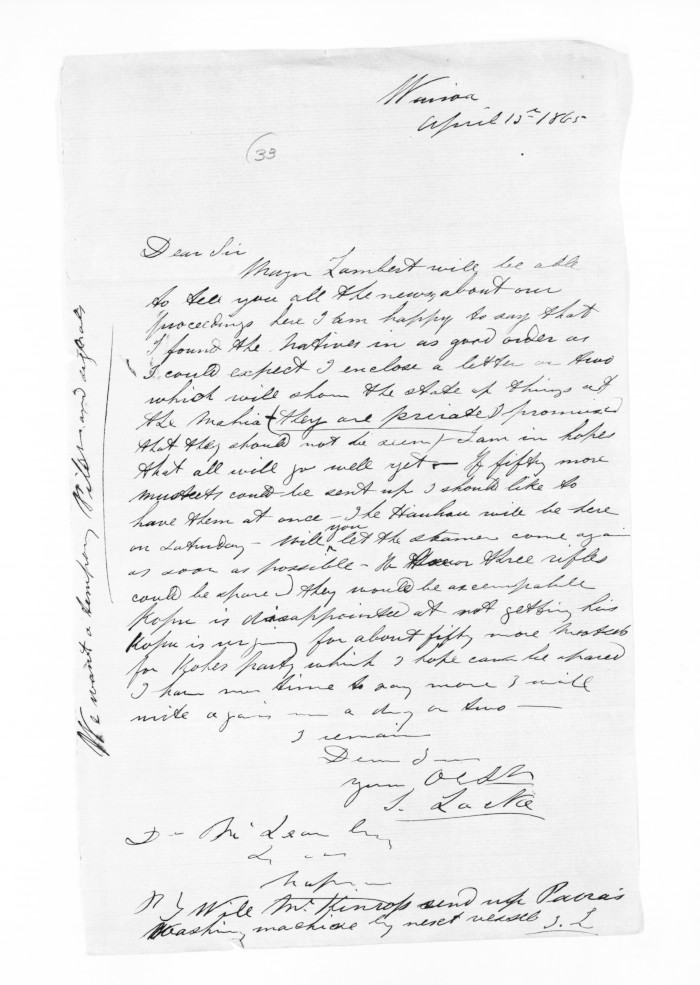 Wairoa
April 13th 1865
(33
Dear Sir
Major Lambert will be able
to tell you all the news about our
proceedings here I am happy to say that
I found the Natives in as good order as
I could expect I enclose a letter or two
which will show the state of things at
the Mahia (they are private I promised
that they should not be seen) I am in hopes
that all will go well yet - If fifty more
muskets could be sent up I should like to
have them at once - The Hauhau will be here
on Saturday - Will you let the steamer come again
as soon as possible - If two or three rifles
could be spared they would be acceptable
Kopu is disappointed at not getting his
Kopu is urging for about fifty more muskets
for party which I hope can be spared
I have no time to say more I will
write again in a day or two -
I remain
Dear Sir
your
S. Locke
D McLean Esq
Napier
P S Will Mr send up
Washing machine by next vessel S. L
We want a temporary and